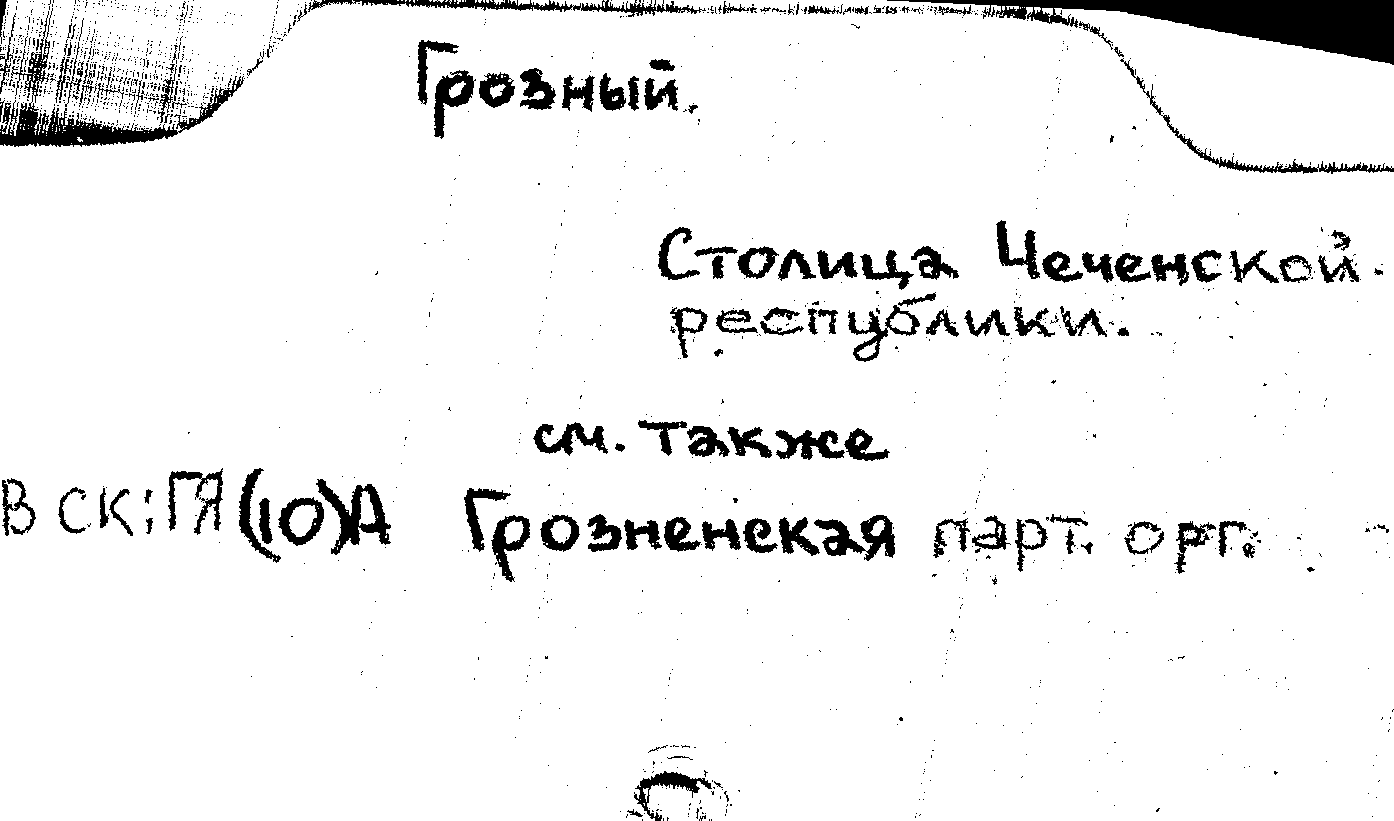 Грозный.
Столица Чеченской
республики.
см. также
В СК: ГЯ(10)А Грозненская парт. орг.